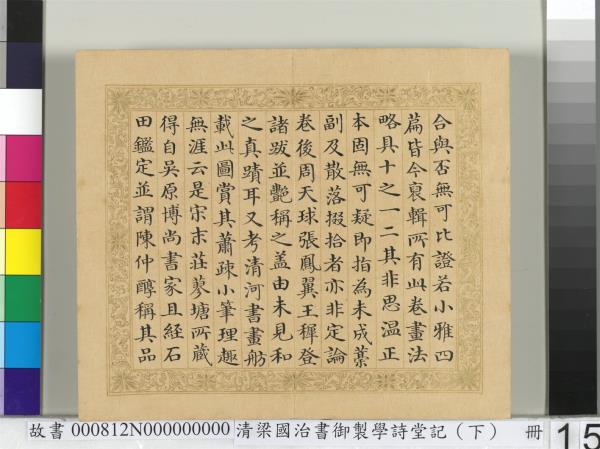 合與否無可比證若小雅四
篇皆今裒輯所有此卷畫法
略具十之一二其非思溫正
本固無可疑即指為未成藁
副及散落掇拾者亦非定論
卷後周天球張鳳翼王穉登
諸跋並艷稱之蓋由未見和
之真蹟耳又考清河書畫舫
載此圖賞其蕭疎小筆理趣
無涯云是宋末莊蓼塘所藏
得自吳原博尚書家且經石
田鑑定並謂陳仲醇稱其品
故書 000812N000000000 清梁國治書御製學詩堂記（下） 冊 15